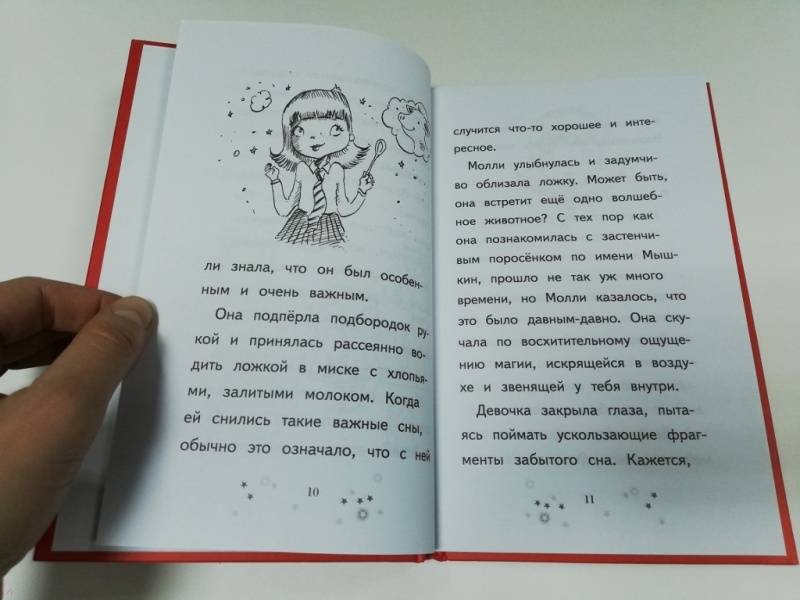 ли знала, что он был особен-
ным и очень важным.
Она подпёрла подбородок ру-
кой и принялась рассеянно во-
дить ложкой в миске с хлопья-
ми, залитыми молоком. Когда
ей снились такие важные сны,
обычно это означало, что с ней
10
случится что-то хорошее и инте-
ресное.
Молли улыбнулась и задумчи-
во облизала ложку. Может быть,
она встретит ещё одно волшеб-
ное животное? С тех пор как
она познакомилась с застенчи-
вым поросёнком по имени Мыш-
кин, прошло не так уж много
времени, но Молли казалось, что
это было давным-давно. Она ску-
чала по восхитительному ощуще-
нию магии, искрящейся в возду-
хе и звенящей у тебя внутри.
Девочка закрыла глаза, пыта-
ясь поймать ускользающие фраг-
менты забытого сна. Кажется,
11